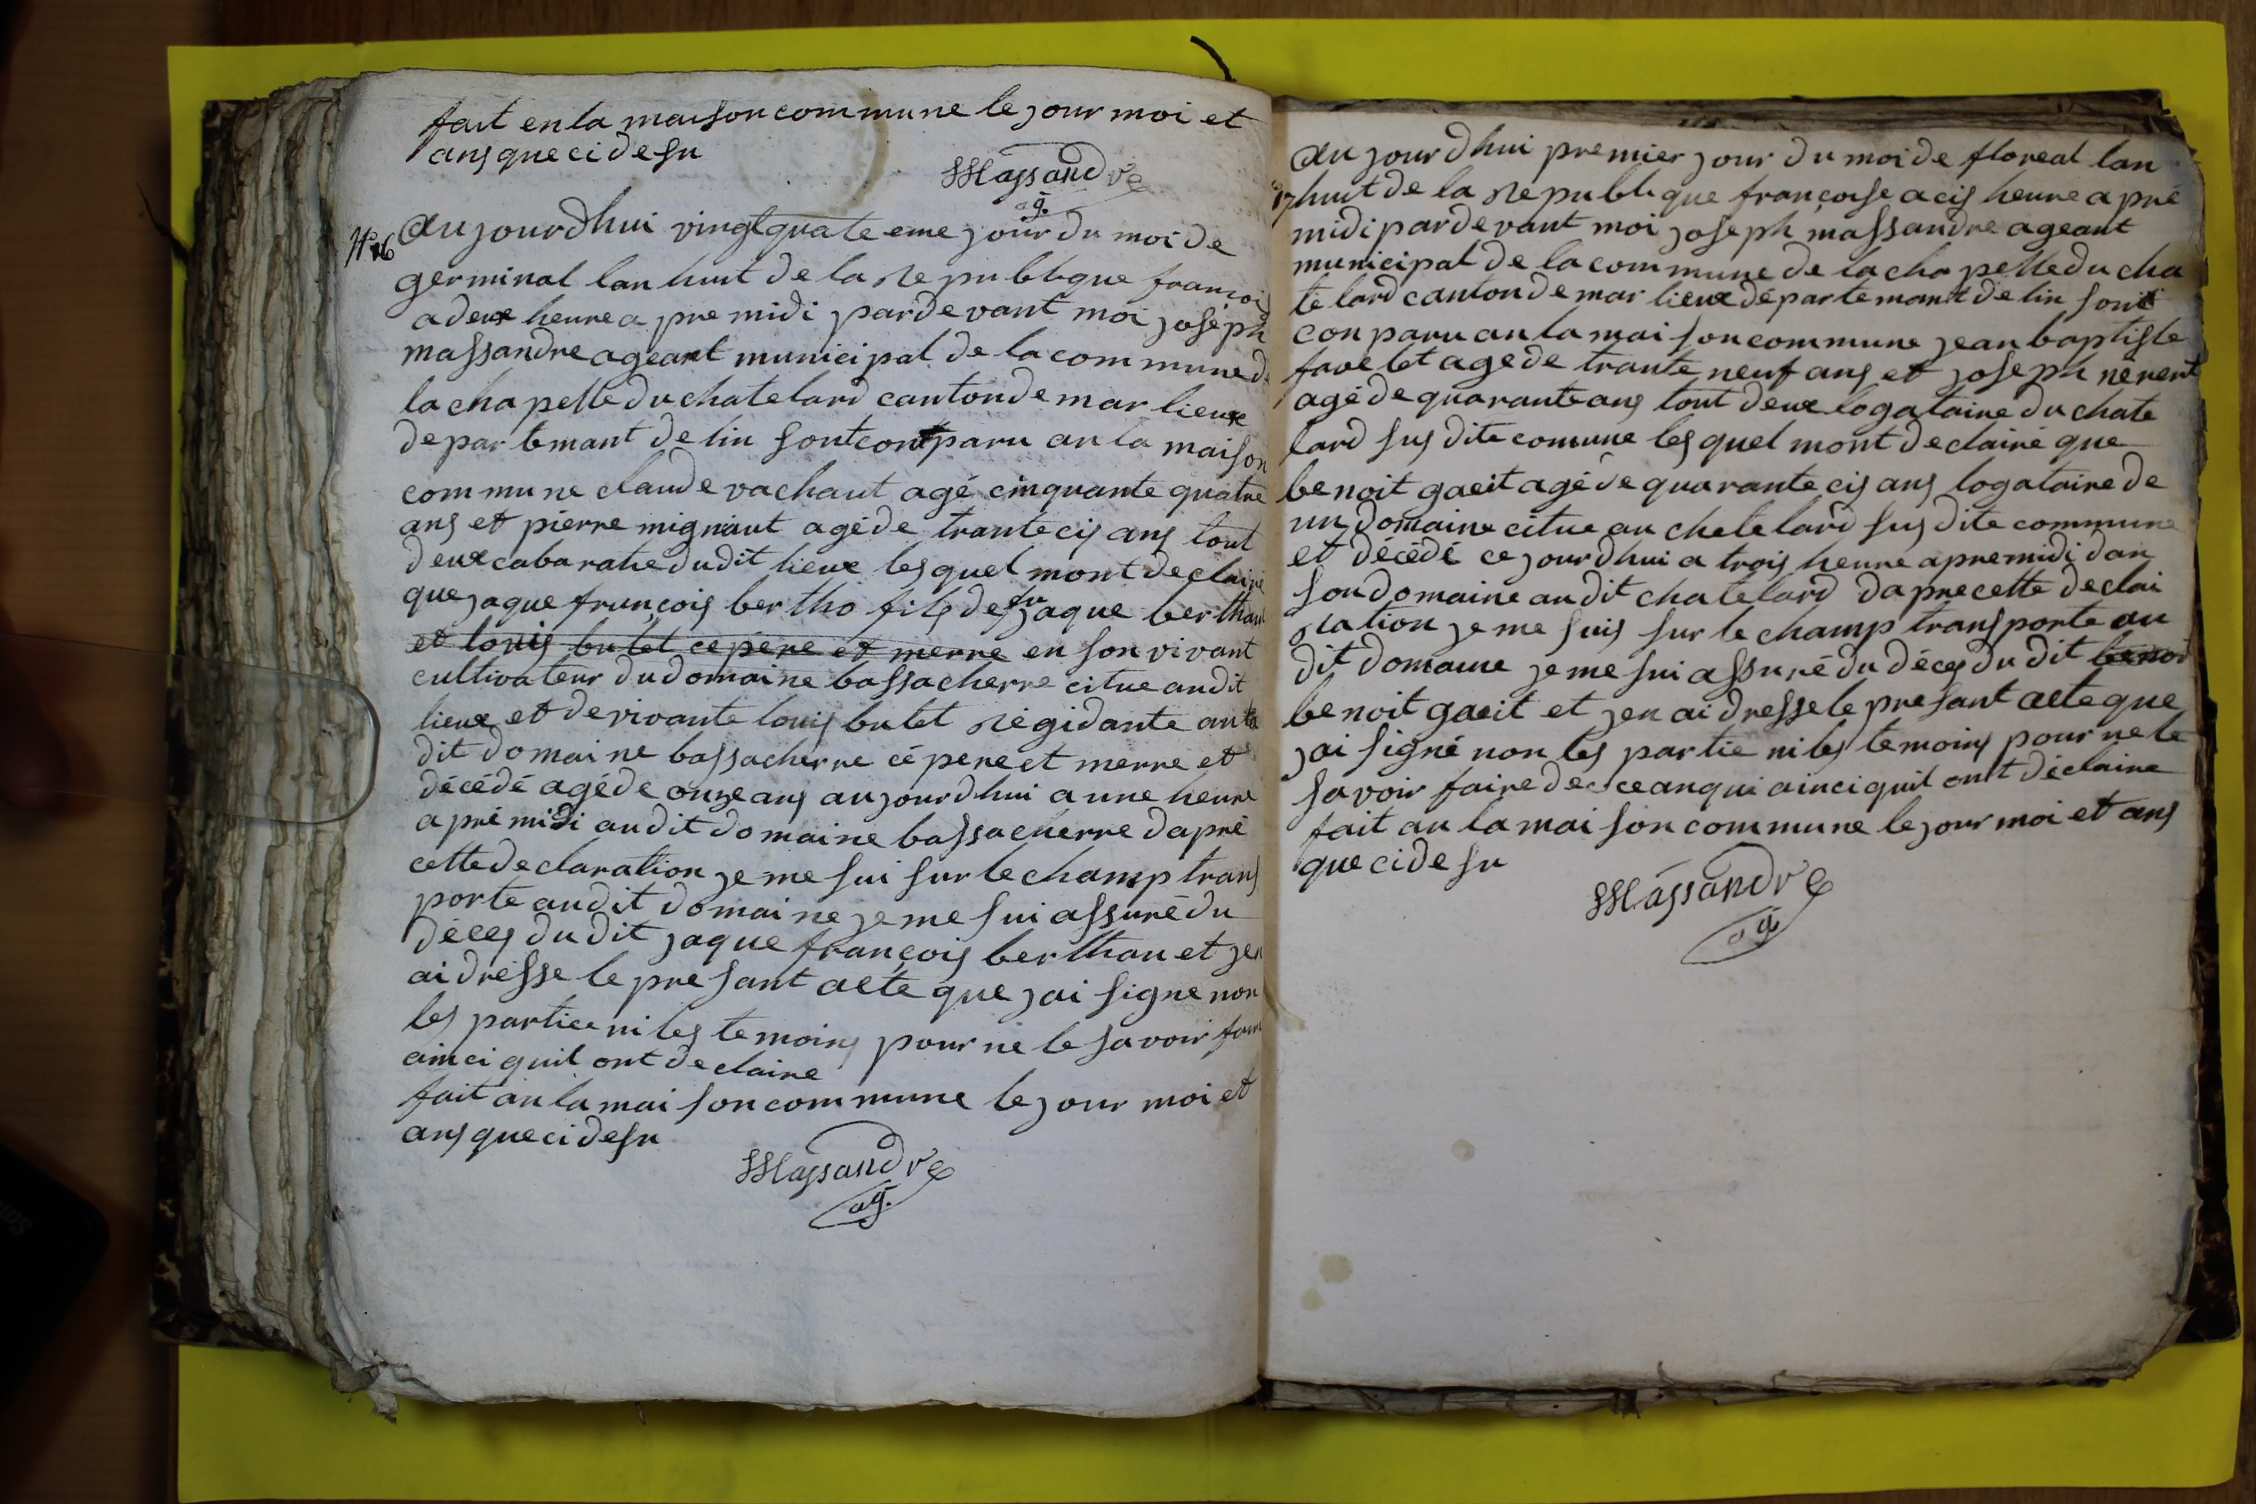 fait en la maison commune le jour moi et
ans que ci desu
Massandre
ag.
N° 16
aujourdhui vingtquate eme jour du moi de
germinal lan huit de la Republique françoi
a deux heure a pre midi pardevant moi joséph
massandre ageant municipal de la commune de
la chapelle du chatelard canton de mar lieux
departemant de lin sont conparu an la maison
commune claude vachaut agé cinquante quatre
ans et piérre mignaut agé de trante cis ans tout
deux cabaratié dudit lieux lesquel mont declairé
que jaque françois bertho fils de fu jaque berthau
et louis butet ce pére et merre en son vivant
cultivateur du domaine bassacherre citue audit
lieux et de vivante louis butet régidante au
dit domaine bassacherre cé pere et merre et
décédé agé de onze ans aujourdhui a une heure
apré midi audit domaine bassacherre dapré
cette declaration je me sui sur le champ trans
porte audit domaine je me sui assuré du
décés dudit jaque françois berthau et jen
ai drésse le presant acte que jai signe non
les partie ni les temoins pour né le savoir faire
ainci quil ont declaire
fait an la maison commune le jour moi et
ans que ci desu
Massandre
ag.
17
aujourdhui premier jour du moi de floreal lan
huit de la Republique françoise a cis heure a pré
midi pardevant moi joseph massandre ageant
municipal de la commune de la chapelle du cha
telard canton de mar lieux département de lin sont
conparu an la maison commune jean baptiste
favelet age de trante neuf ans et joseph nérent
agé de quarante ans tout deux logataire du chate
lard sus dite comune lesquel mont declairé que
benoit gaeit agé de quarante cis ans logataire de
un domaine citue au chatelard sus dite commune
et décédé ce jourdhui a trois heure apremidi dan
son domaine audit chatelard dapre cette declai
ration je me suis sur le champ transporte au
dit domaine je me sui assuré du déces du dit benoi
benoit gaeit et jen ai dresse le presant acte que
jai signé non les partie ni les temoins pour ne le
savoir faire de ce anqui ainci quil ont déclaire
fait an la maison commune le jour moi et ans
que ci desu
Massandre
ag